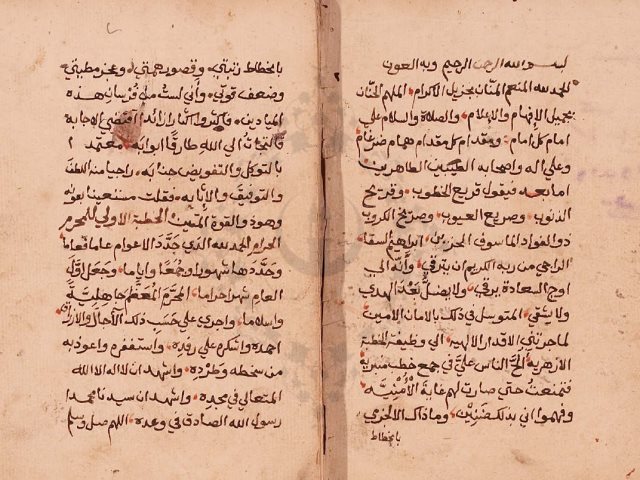 بسم الله الرحمن الرحيم وبه العون
الحمد لله المنعم المنان بجزيل الاكرام الملهم الحنان
بجميل الافهام والاعلام والصلاة والسلام علي
امام كل امام ومقدام كل مقدام همام ضرغام
وعلي اله واصحابه الطيبين الطاهرين
اما بعد فيقول قريع الخطوب وقريح
الذنوب وصريع العيوب وصريخ الكروب
ذو الفواد الماسوف الحزين ابراهيم السقا
الراجي من ربه الكريم ان يترقي وانه الي
اوج السعادة يرقي ولا يضل بعد الهدي
ولا يشقي المتوسل في ذلك بالامان الامين
لما جرتني الاقدار الالهيه الي وظيفة الخطبة
الازهرية الح الناس علي في جمع خطب منبرية
فتمنعت حتي صارت لهم غاية الامنيه
وفهموا اني بذلك ضنين وما ذاك الا لخبري
بانحطاط
بانحطاط رتبتي وقصور همتي وعجز مطيتي
وضعف قوتي واني لست من فرسان هذه
الميادين فاكثروا تكرارا زائدا اقتضي الاجابة
فالتجات الي الله طارقا ابوابه معتمدا
بالتوكل والتفويض جنابه راجيا منه اللطف
والتوفيق والانابه فقلت مستعينا بعونه
وهو ذو القوة المتين الخطبة الاولي للمحرم
الحرام الحمد لله الذي جدد الاعوام عاما فعاما
وحددها شهورا وجمعا واياما وجعل اول
العام شهرا حراما المحرم المعظم جاهلية
واسلاما واجري علي حسب ذلك الآجال والارزاق
احمده واشكره علي رفده واستغفره واعوذ به
من سخطه وطرده واشهد ان لا اله الا الله
المتعالي في مجده واشهد ان سيدنا محمدا
رسول الله الصادق في وعده اللهم صل وسلم